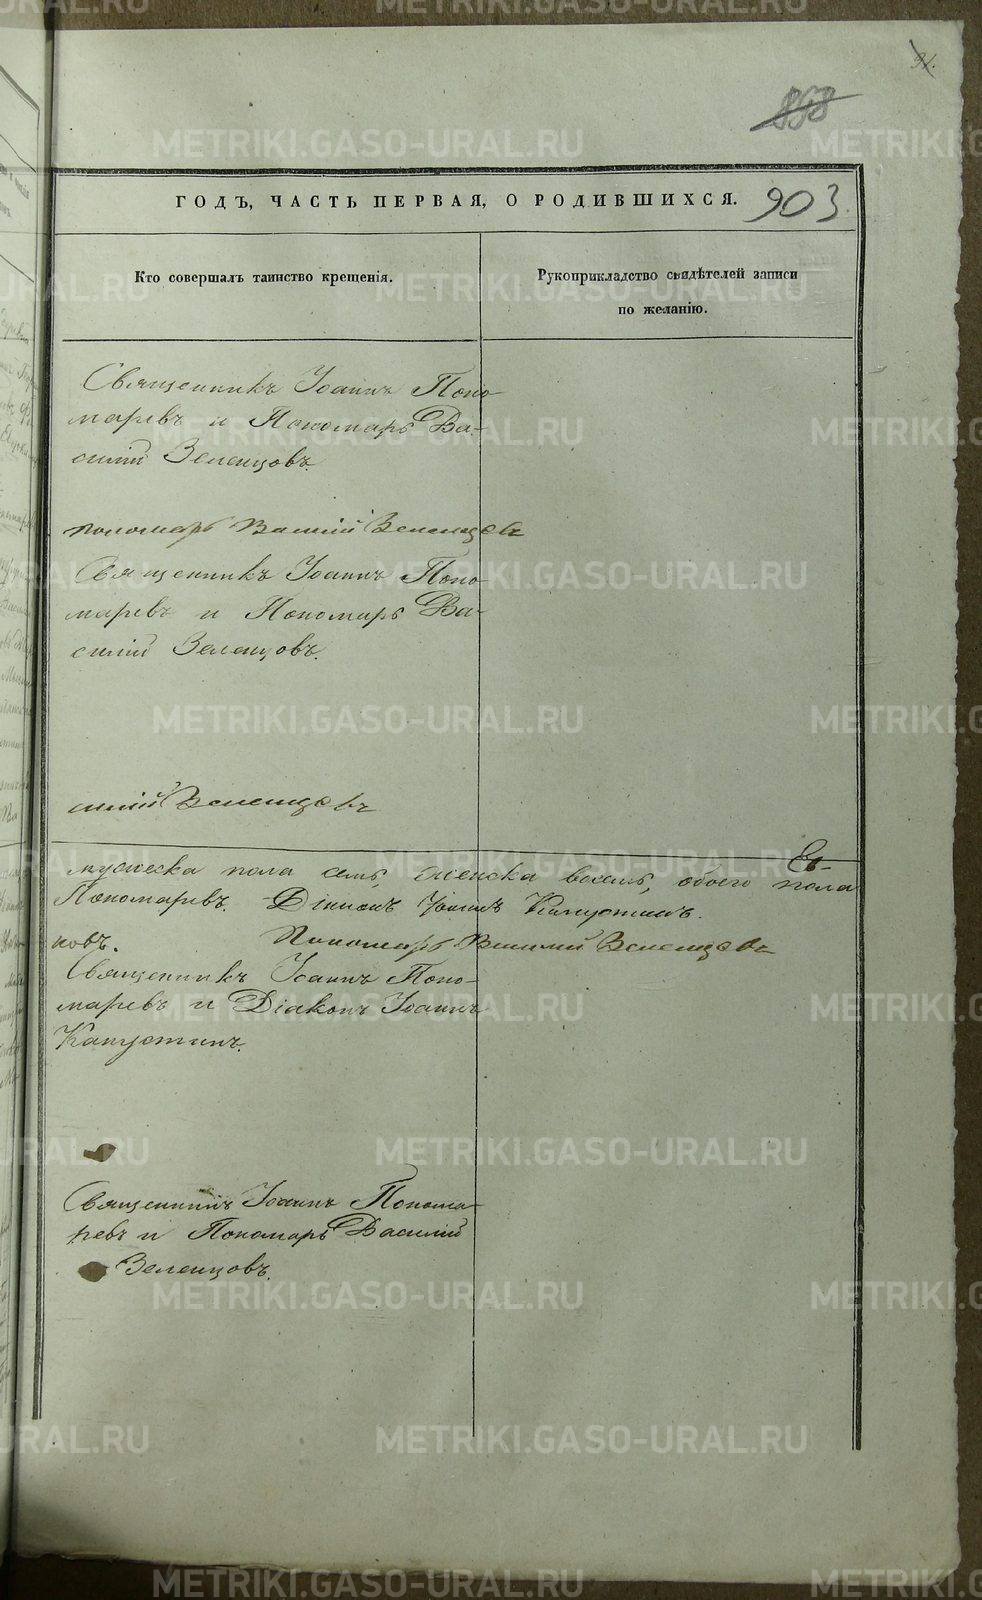 91.
898
ГОДЪ, ЧАСТЬ ПЕРВАЯ, О РОДИВШИХСЯ. 903
Кто совершалъ таинство крещенія.
Рукоприкладство свидѣтелей записи
по желанію.
Священникъ Іоаннъ Поно-
маревъ и Пономарь Ва-
силій Зеленцовъ.
пономарь Василій Зеленцовъ
Священникъ Іоаннъ Поно-
маревъ и Пономарь Ва-
силій Зеленцовъ.
силій Зеленцовъ
мужеска пола семь, женска восемь, обоего пола
Пономаревъ. Діаконъ Іоаннъ Капустинъ.
ковъ. Пономарь Василій Зеленцовъ
Священникъ Іоаннъ Поно-
маревъ и Діаконъ Іоаннъ
Капустинъ.
Священникъ Іоаннъ Понома-
ревъ и Пономарь Василій
Зеленцовъ.
METRIKI.GASO-URAL.RU